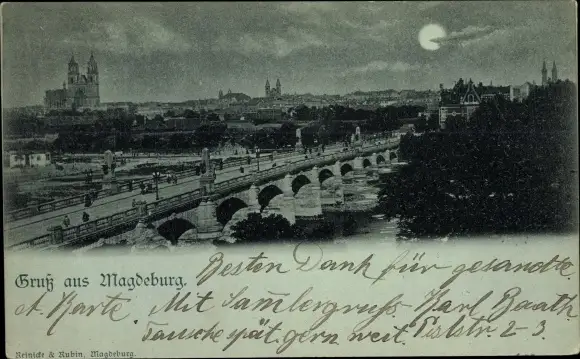 Gruß aus Magdeburg. Besten Dank für gesandte
A. Karte. Mit Sam̅lergruß Karl Baath
Tausche spät. gern weit. Pislstr. 2-3.
Reinicke & Rubin, Magdeburg.